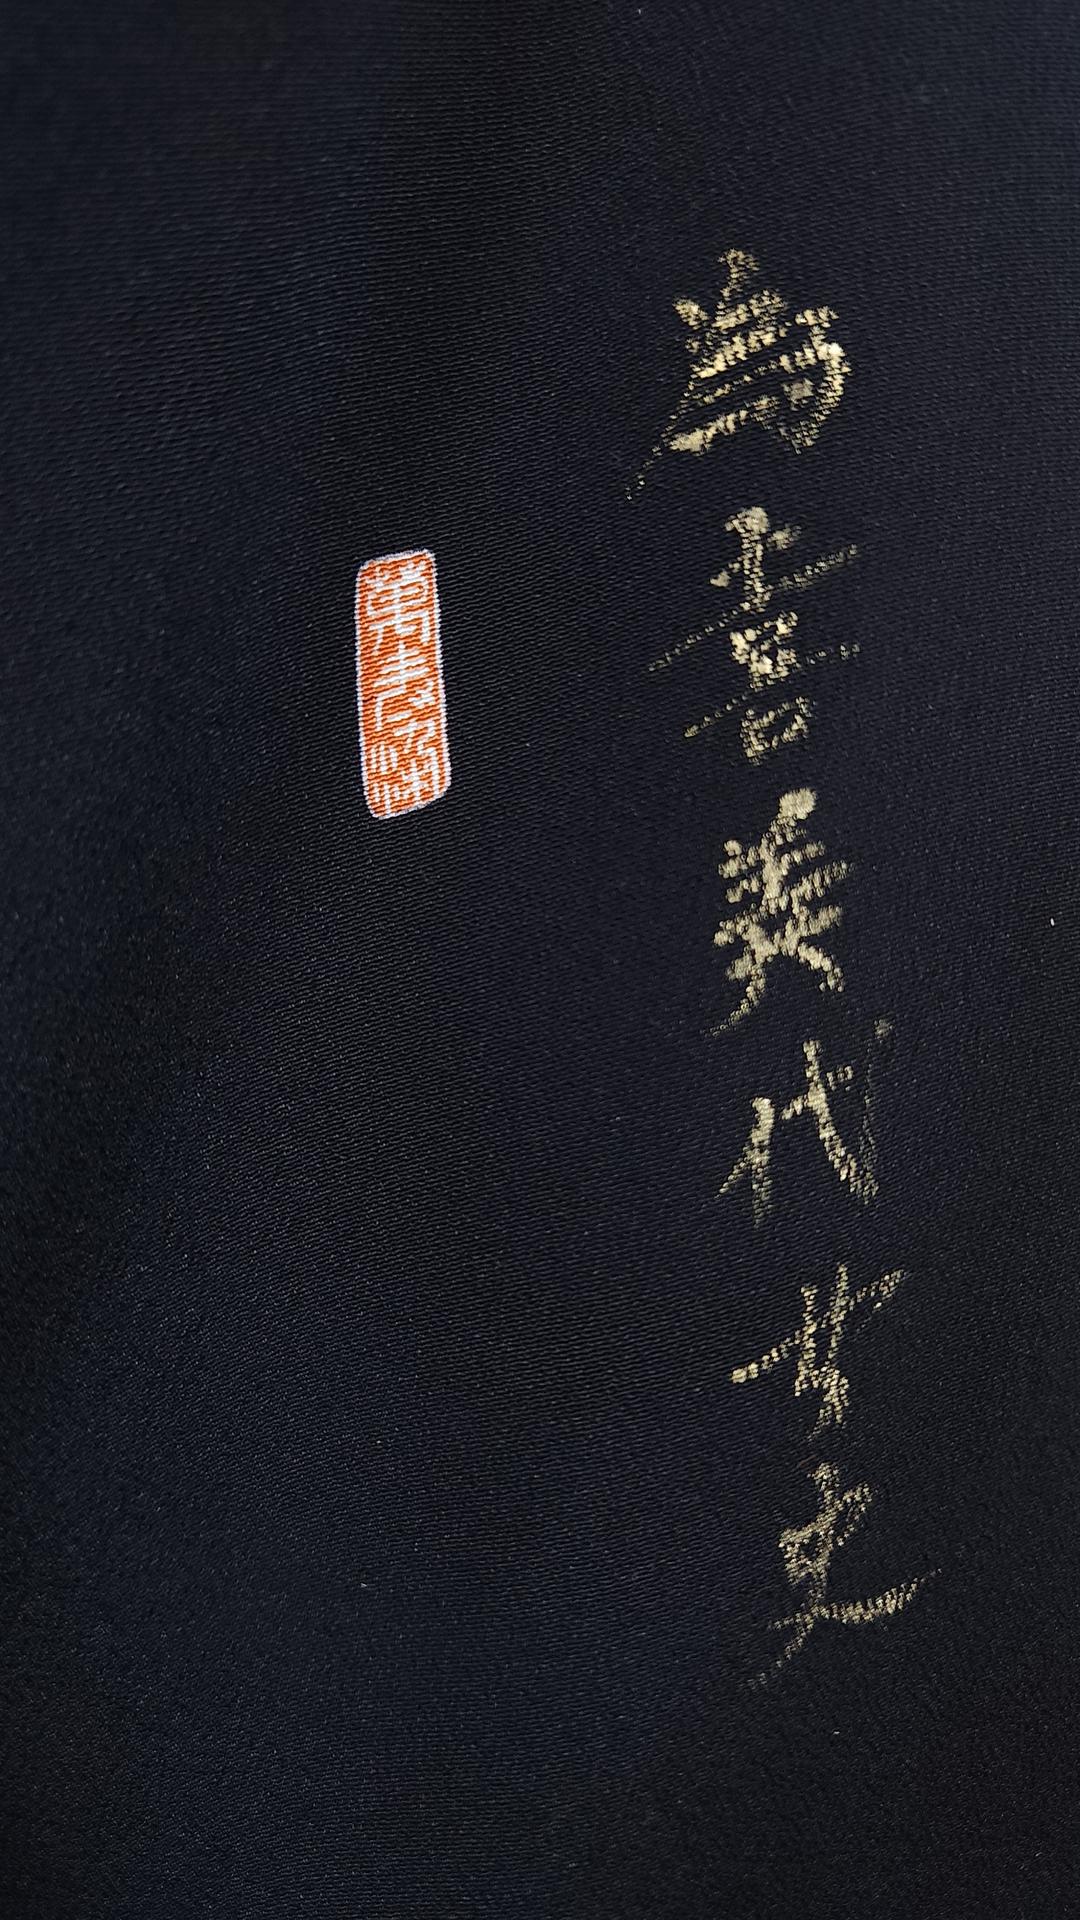 為喜美代女史